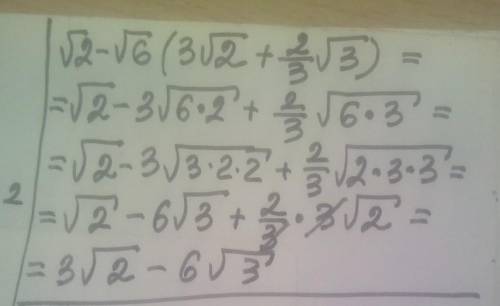 √2-√6(3√2+2/3√3)=
=√2-3√(6•2)+2/3√(6•3)=
=√2-3√(3•2•2)+2/3√(2•3•3)=
2
=√2-6√3+2/3•3√2=
=3√2-6√3